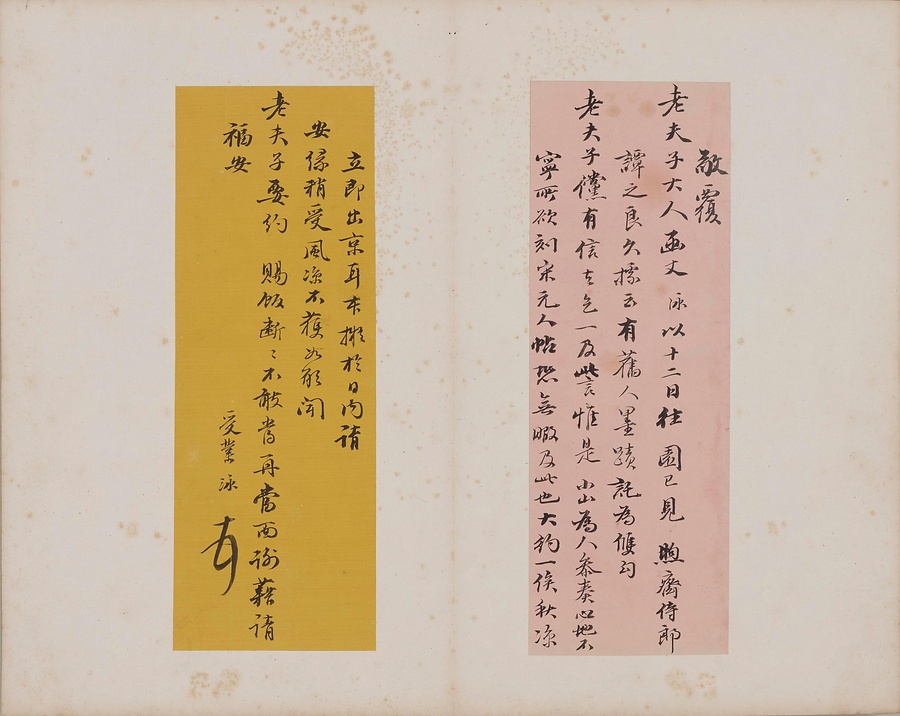 敬覆
老夫子大人函丈 泳以十二日往 園已見 煦齋侍郎
譚之良久據云有舊人墨蹟託為雙勾
老夫子儻有信去乞一及此言惟是小山為人忝奏心地不
寧所欲刻宋元人帖恐無暇及此也大約一俟秋涼
立即出京耳本擬於日內請
安緣稍受風涼不獲如願聞
老夫子要約 賜飯斷斷不敢當再當面謝藉請
福安
受業泳